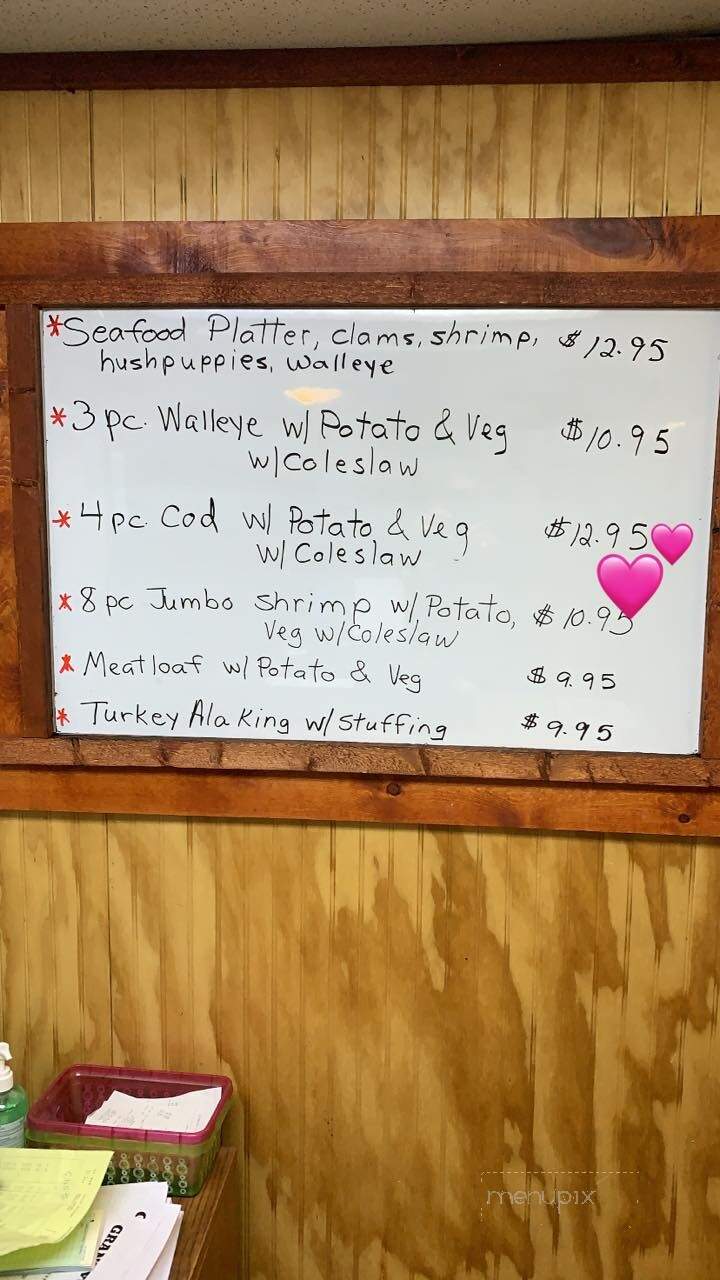 *Seafood Platter, clams, shrimp, $12.95
hushpuppies, walleye
*3 pc. Walleye w/ Potato & Veg $10.95
w/Coleslaw
*4 pc. Cod w/ Potato & Veg $12.95
w/ Coleslaw
*8 pc Jumbo shrimp w/, Potato, $10.95
Veg w/Coleslaw
*Meatloaf w/ Potato & Veg $9.95
*Turkey Ala King w/ Stuffing $9.95
menupix